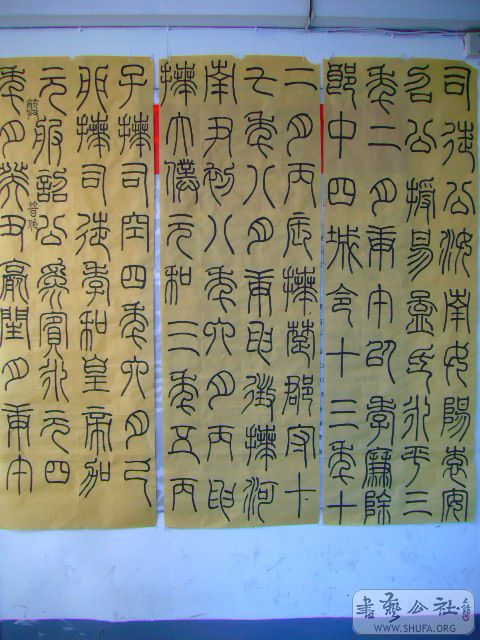 司徒公汝南女陽袁安
召公授易孟氏永平三
年二月庚午以孝廉除
郎中四城令十三年十
二月丙辰拜楚郡守十
七年八月庚申徵拜河
南尹初八年六月丙申
拜大僕元和三年五丙
子拜司空四年六月己
卯拜司徒孝和皇帝加
元服詔公為賓永元四
年月癸丑薨閏月庚午
書藝公社
WWW.SHUFA.ORG